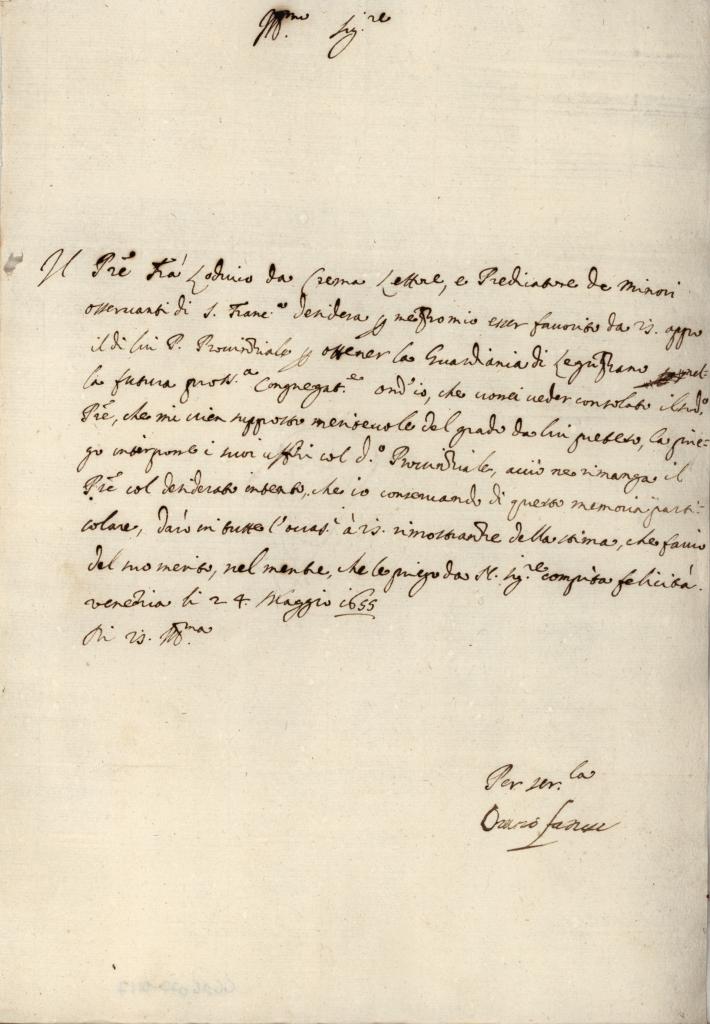 Ill.mo Sig.re
Il Pre Fra Lodvico da Crema Lettre, e Predicatore de Minori
osservanti di S. Franc.o desidera p mezzo mio esser favorito da V.S. appo
il di lui P. Provintiale p ottener la Guardiania di nel
la futura pross.a Congregat.e ond'io, che vorrei veder consolato il sud.o
Pre, che mi vien supposto meritevole del grado da lui preteso, la prie-
go interporre i suoi uffici col d.o Provintiale, acciò ne rimanga il
Pre col desiderato intento, che io conservando di questo memoria parti-
colare, darò in tutte l'occas.i à V.S. rimostranze della stima, che faccio
del suo merito, nel mentre, che le priego da N. Sig.re compita felicità.
Venetia li 24. Maggio 1655
Di V.S. Ill.ma
Per ser.la